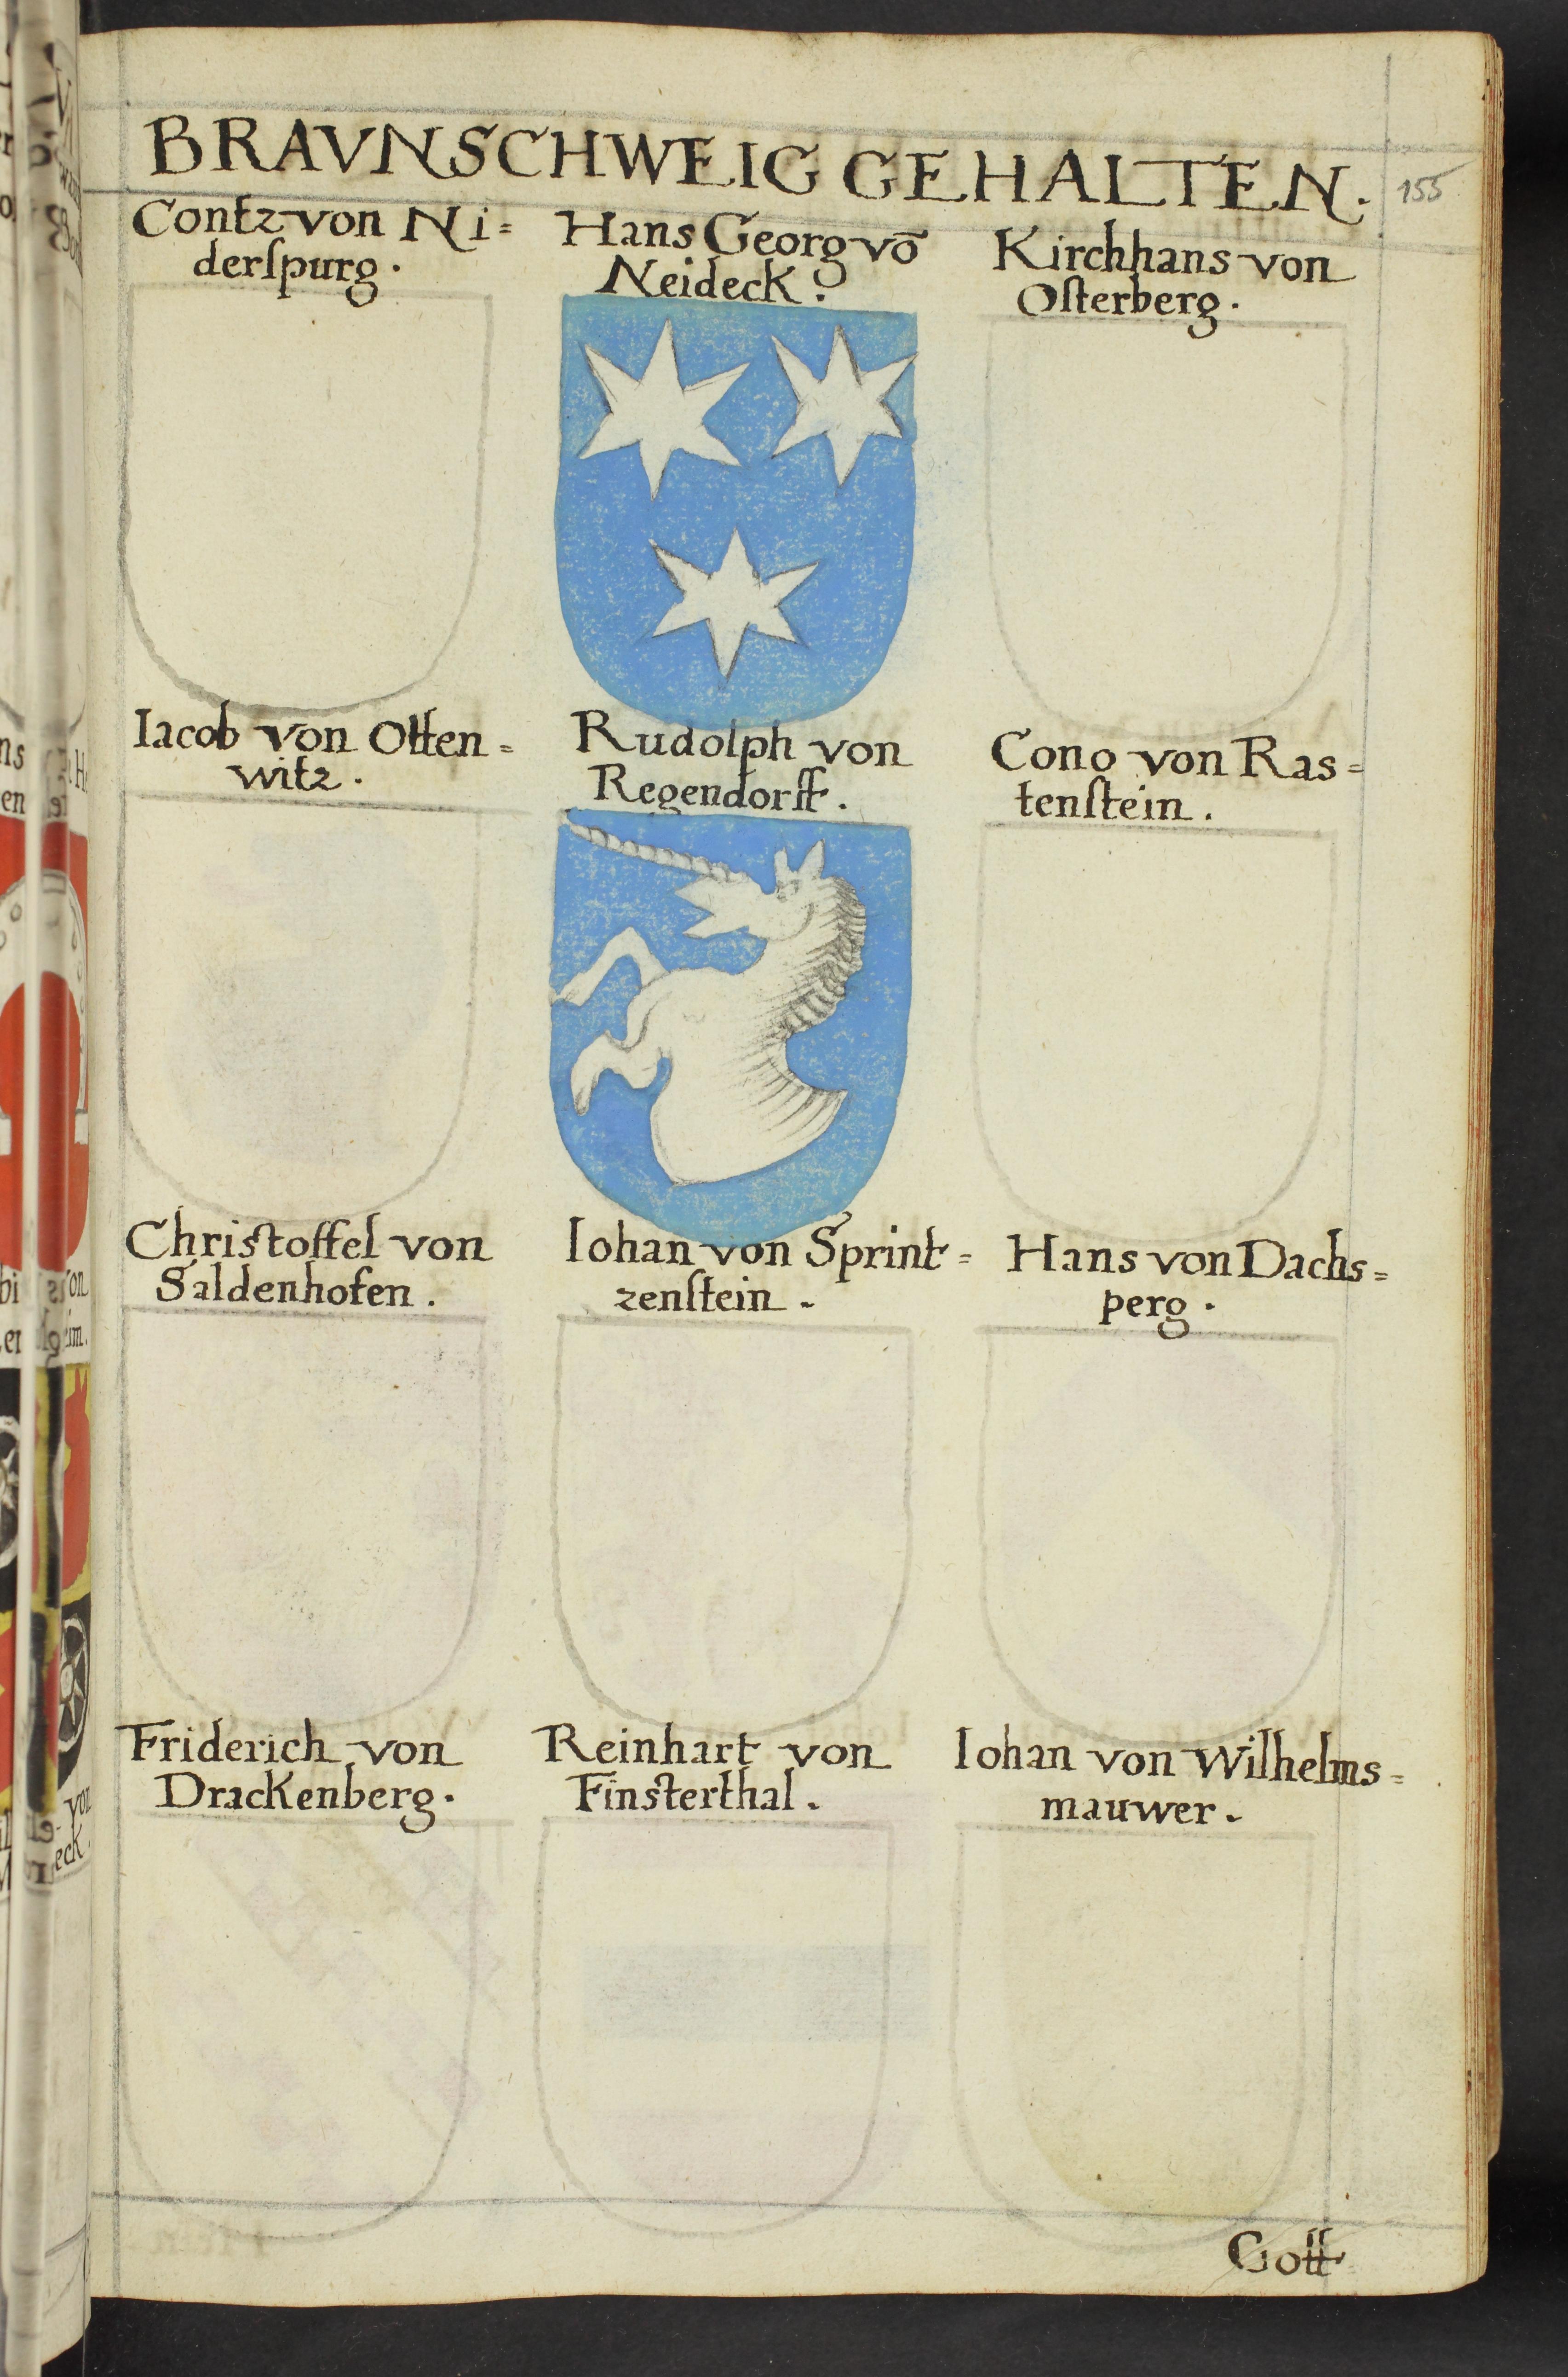 BRAVNSCHWEIG GEHALTEN.
155
Contz von Ni=
derſpurg.
Hans Georg vō
Neideck.
Kirchhans von
Oſterberg.
Iacob von Otten=
witz.
Rudolph von
Regendorff.
Cono von Ras=
tenſtein.
Chriſtoffel von
Saldenhofen.
Iohan von Sprint=
zenſtein.
Hans von Dachs=
perg.
Friderich von
Drackenberg.
Reinhart von
Finſterthal.
Iohan von Wilhelms=
mauwer.
Gott